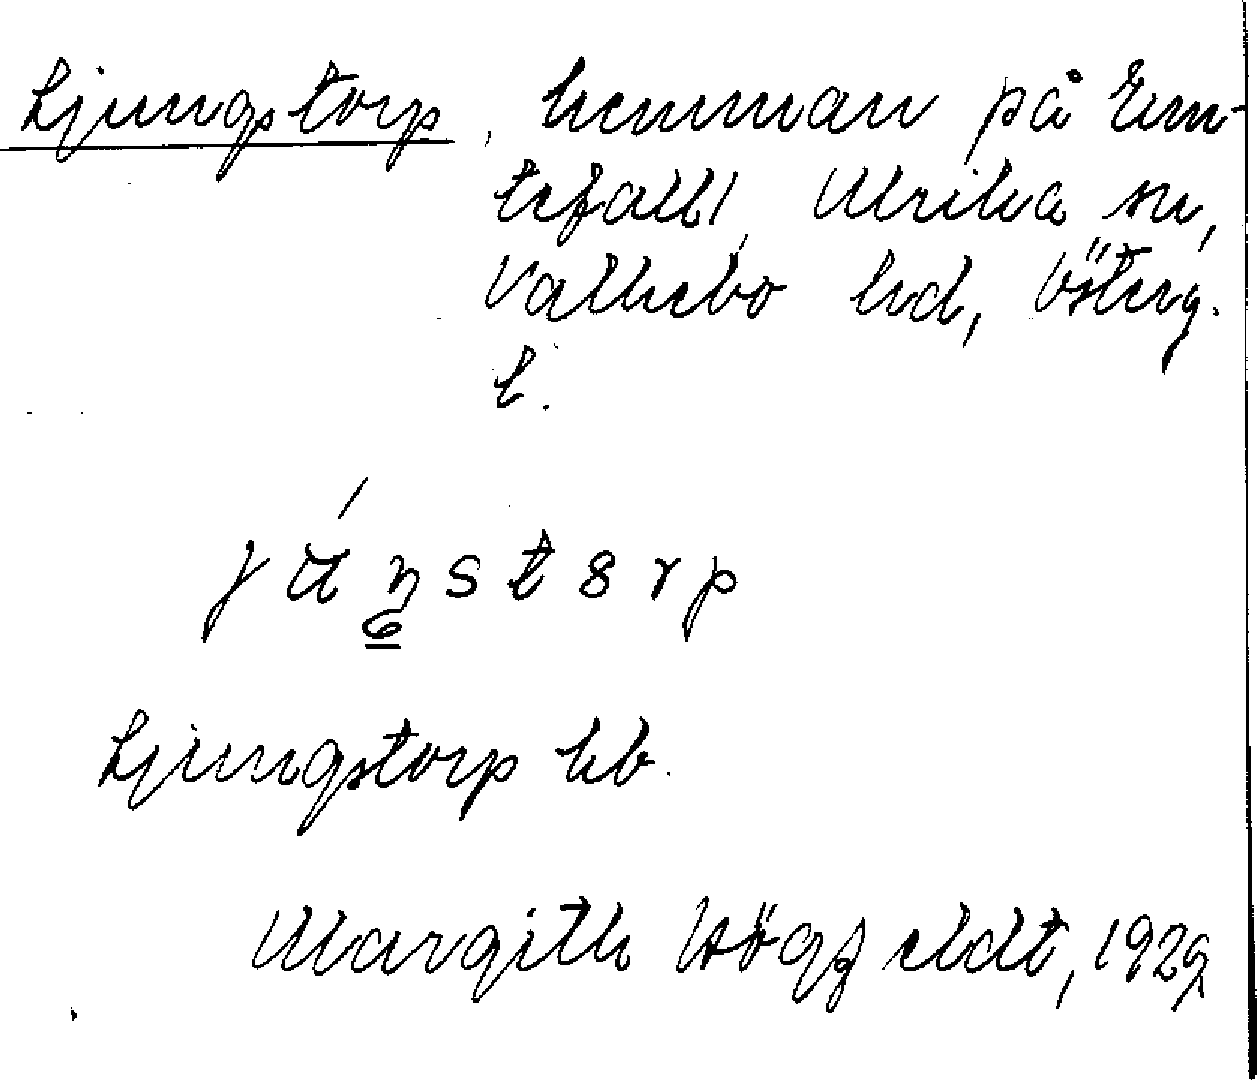 Ljungstorp, hemman på Em-
tefall, Ulrika sn,
Valkebo hd, Österg.
l.
Ljungstorp kb.
Margith Högfeldt, 1929